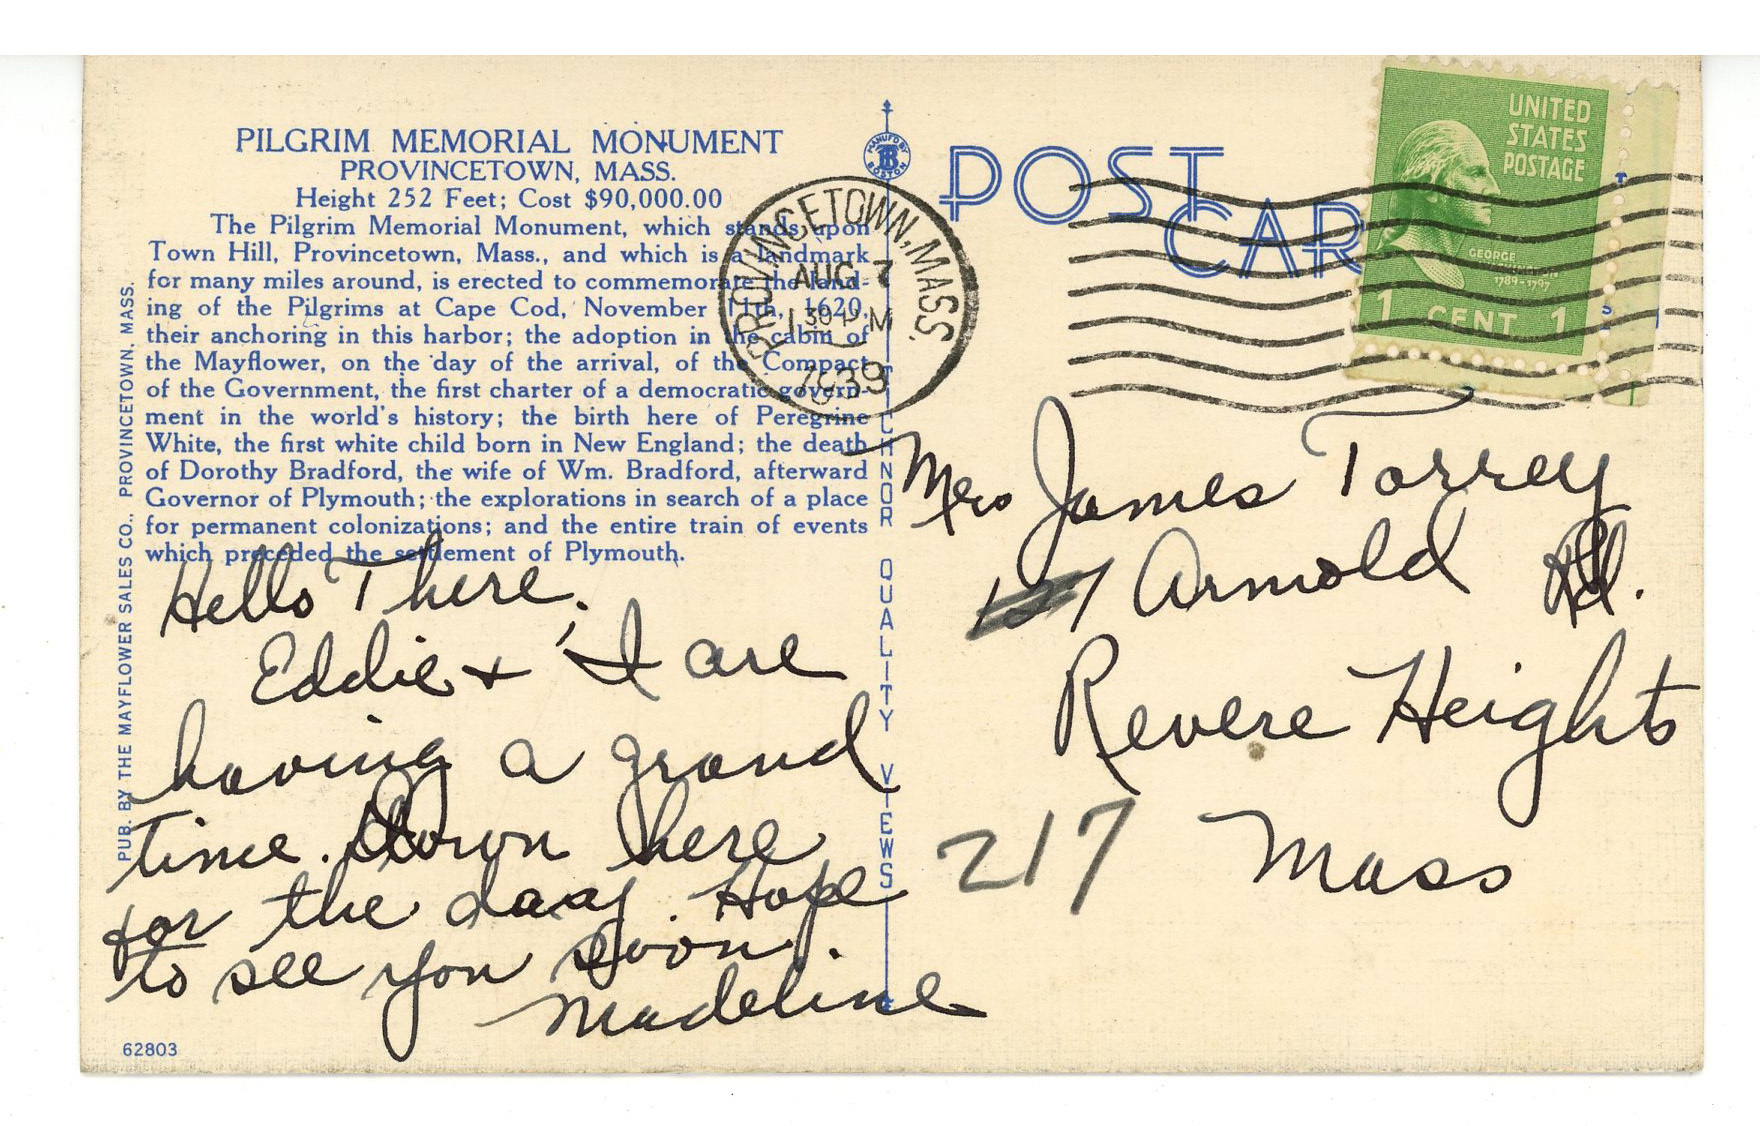 PILGRIM MEMORIAL MONUMENT
PROVINCETOWN, MASS.
Height 252 Feet; Cost $90,000.00
The Pilgrim Memorial Monument, which stands upon
Town Hill, Provincetown, Mass., and which is a landmark
for many miles around, is erected to commemorate the land-
ing of the Pilgrims at Cape Cod, November 11th, 1620,
their anchoring in this harbor; the adoption in the cabin of
the Mayflower, on the day of the arrival, of the Compact
of the Government, the first charter of a democratic govern-
ment in the world's history; the birth here of Peregrine
White, the first white child born in New England; the death
of Dorothy Bradford, the wife of Wm. Bradford, afterward
Governor of Plymouth; the explorations in search of a place
for permanent colonizations; and the entire train of events
which preceded the settlement of Plymouth.
Hello There,
Eddie + I are
having a grand
time. Down here
for the day. Hope
to see you soon.
Madeline
62803
PUB. BY THE MAYFLOWER SALES CO., PROVINCETOWN, MASS.
MANUF'D BY
BOSTON
TICHNOR QUALITY VIEWS
PROVINCETOWN, MASS.
AUG 7
1939
POST
CAR
UNITED
STATES
POSTAGE
GEORGE
WASHINGTON
1789-1797
1 CENT 1
Mrs James Torrey
127 Arnold Rd.
Revere Heights
217 Mass